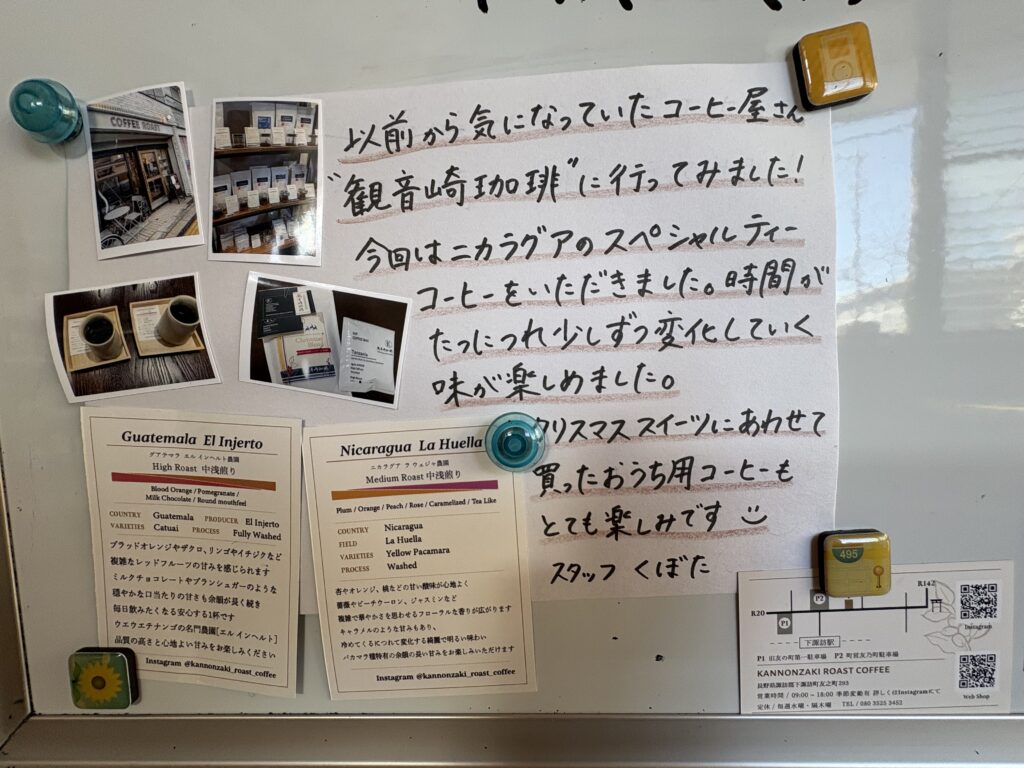 COFFEE ROAST
以前から気になっていたコーヒー屋さん
"観音崎珈琲"に行ってみました!
今回はニカラグアのスペシャルティー
コーヒーをいただきました。時間が
たっにつれ少しずつ変化していく
味が楽しめました。
クリスマススイーツにあわせて
買ったおうち用コーヒーも
とても楽しみです
スタッフ くぼた
Christmas
Blend
Tanzania
Guatemala El Injerto
グアテマラ エル インヘルト農園
High Roast 中浅煎り
Blood Orange / Pomegranate /
Milk Chocolate / Round mouthfeel
COUNTRY Guatemala PRODUCER El Injerto
VARIETIES Catuai PROCESS Fully Washed
ブラッドオレンジやザクロ、リンゴやイチジクなど
複雑なレッドフルーツの甘みを感じられます
ミルクチョコレートやブランシュガーのような
穏やかな口当たりの甘さも余韻が長く続き
毎日飲みたくなる安心する1杯です
ウエウエテナンゴの名門農園[エルインヘルト]
品質の高さと心地よい甘みをお楽しみください
Instagram @kannonzaki_roast_coffee
Nicaragua La Huella
ニカラグア ラ ウェジャ農園
Medium Roast 中浅煎り
Plum / Orange / Peach / Rose / Caramelized / Tea Like
COUNTRY Nicaragua
FIELD La Huella
VARIETIES Yellow Pacamara
PROCESS Washed
杏やオレンジ、桃などの甘い酸味が心地よく
薔薇やピーチウーロン、ジャスミンなど
複雑で華やかさを思わせるフローラルな香りが広がります
キャラメルのような甘みもあり、
冷めてくるにつれて変化する綺麗で明るい味わい
パカマラ種特有の余韻の長い甘みをお楽しみいただけます
Instagram @kannonzaki_roast_coffee
495
R142
R20
P2
P1
下諏訪駅
Instagram
P1 旧友の町第一駐車場 P2 町営友乃町駐車場
KANNONZAKI ROAST COFFEE
長野県諏訪郡下諏訪町友之町293
営業時間 / 09:00 ~ 18:00 季節変動有 詳しくはInstagramにて
定休 / 毎週水曜・隔木曜 TEL / 080 3525 3452
Web Shop